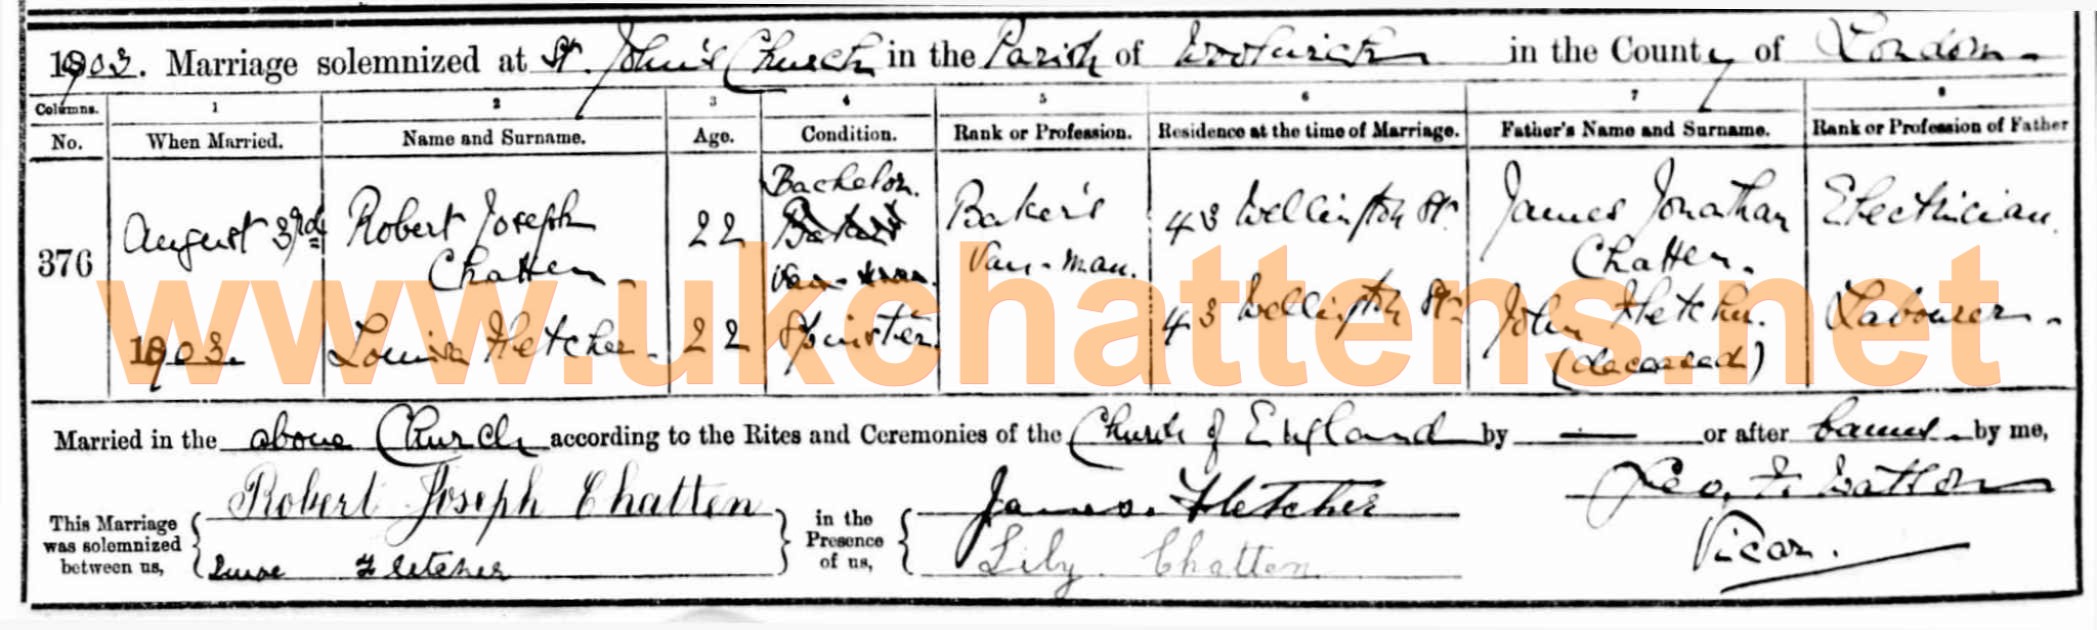 1903. Marriage solemnized at St. John's Church in the Parish of Woolwich in the County of London
Columns. 1 2 3 4 5 6 7 8
No. When Married. Name and Surname. Age. Condition. Rank or Profession. Residence at the time of Marriage. Father's Name and Surname. Rank or Profession of Father
376 August 3rd Robert Joseph Chatten 22 Bachelor. Van-man. Baker's Van-man. 43 Wellington St. James Jonathan Chatten. Electrician.
1903. Louisa Fletcher 22 Spinster. 43 Wellington St. John Fletcher. (deceased) Labourer.
www.ukchattens.net
Married in the above Church according to the Rites and Ceremonies of the Church of England by — or after banns by me,
This Marriage was solemnized between us, Robert Joseph Chatten in the Presence of us, James Fletcher Geo.
Fletcher Lily Chatten Vicar.